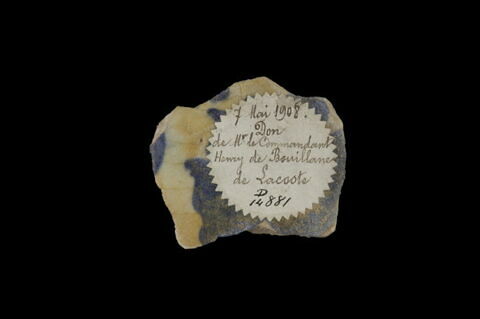 7 Mai 1908.
Don
de Mr le Commandant
Henry de Bouillane
de Lacoste
D
14881